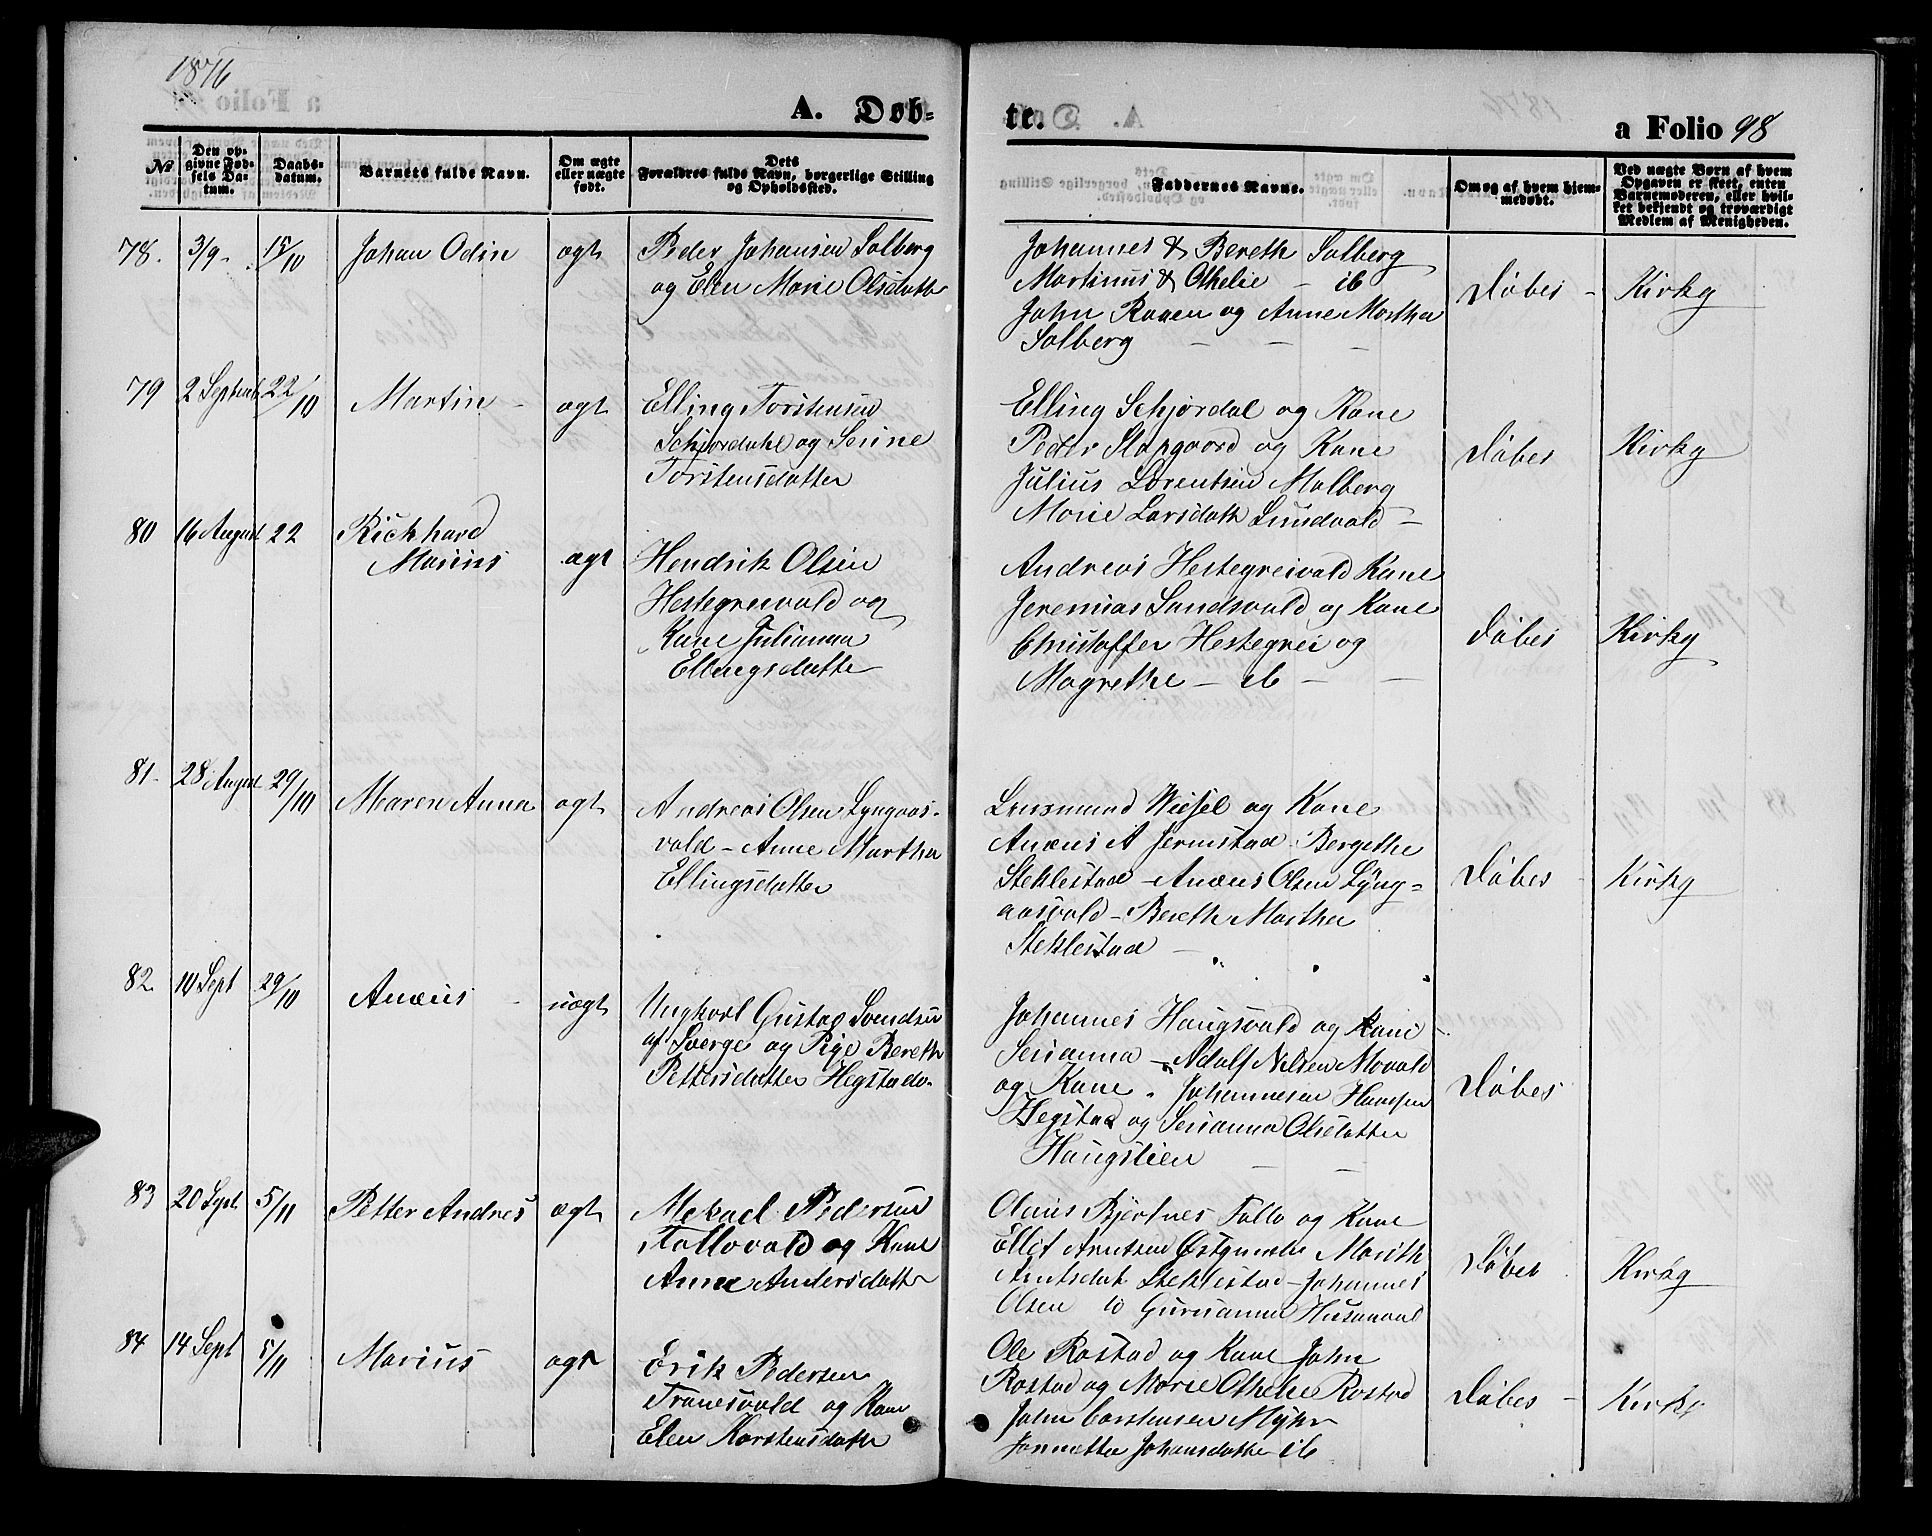 1876
A. Døb-
te.
a Folio 98
№
Den op-
givne Fød-
sels Da-
tum.
Daabs-
datum.
Barnets fulde Navn.
Om ægte
eller uægte
født.
Dets
Forældres fulde Navn, borgerlige Stilling
og Opholdssted.
Faddernes Navne.
Om og af hvem hjem-
medøbt.
Ved uægte Børn af hvem
Opgaven er skeet, enten
Barnemoderen, eller hvil-
ket bekjendt og troværdigt
Medlem af Menigheden.
78.
3/9
15/10
Johan Odin
ægt
Peder Johansen Solberg
og Elen Marie Olsdatter
Johannes & Bereth Solberg
Martinus & Othelie - ib
John Raaen og Anne Martha
Solberg
Døbes
Kirky
79
2 Septemb
22/10
Martin
ægt
Elling Torstensen
Schjørdahl og Serine
Torstensdatter
Elling Schjørdal og Kone
Peder Slapgaard og Kone
Julius Lorentsen Molberg
Marie Larsdatter Lundvald
Døbes
Kirky
80
16 August
22
Rickhard
Marius
ægt
Hendrik Olsen
Hestegreivald og
Kone Julianna
Ellingsdatter
Andreas Hestegreivald Kone
Jeremias Sandsvald og Kone
Christoffer Hestegrei og
Magrethe - ib
Døbes
Kirky
81
28 August
29/10
Maren Anna
ægt
Andreas Olsen Lyngaas-
vald - Anne Martha
Ellingsdatter
Lensmand Wessel og Kone
Anæus A Jermstad Bergethe
Steklestad - Anæus Olsen Lyng=
aasvald - Bereth Martha
Steklestad
Døbes
Kirky
82.
10 Sept
29/10
Anæus
uægt
Ungkarl Gustav Svendsen
af Sverge og Pige Bereth
Pettersdatter Hegstad
Johannes Haugsvald og Kone
Serianna - Adolf Nilsen Movald
og Kone. Johannesen Hansen
Hegstad og Serianna Olsdatter
Haugslien
Døbes
83
20 Sept
5/11
Petter Andres
ægt
Mekael Pedersen
Tollovald og Kone
Anne Andersdatter
Olaus Bjertnes Tollo og Kone
Ellef Arntsen Østgrunden Marith
Arntsdat Steklestad - Johannes
Olsen Gurianna Husanvald
Døbes
Kirky
84
14 Sept
5/11
Marius
ægt
Erik Pedersen
Tranesvald og Kone
Elen Karstensdatter
Ole Rostad og Kone John
Rostad og Marie Othelie Rostad
John Carstensen Myhr
Jannetta Johansdatter ib
Døbes
Kirky